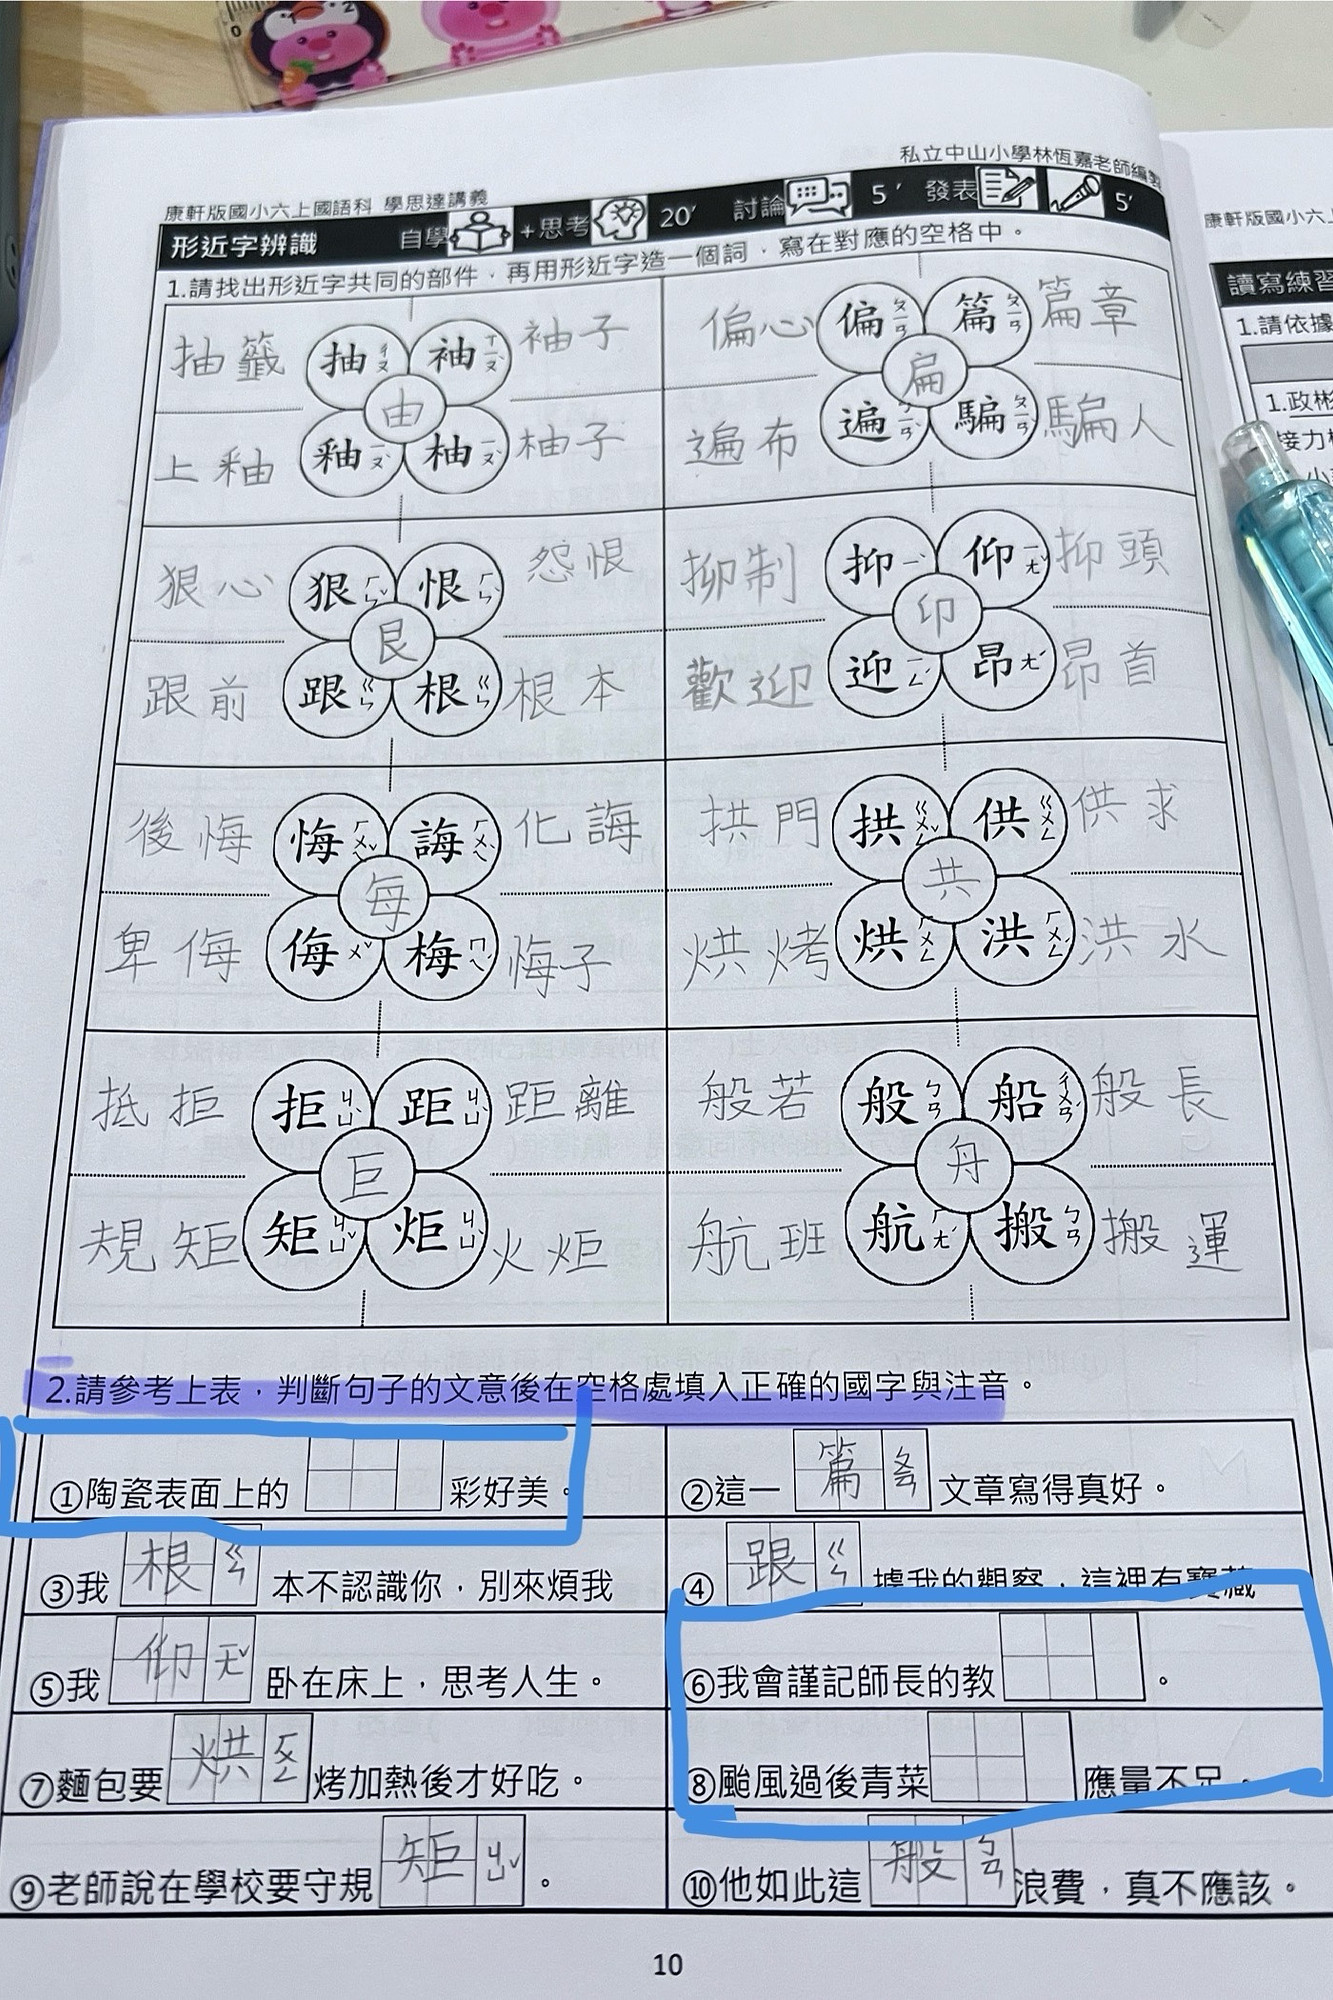 私立中山小學林恆嘉老師編製
康軒版國小六上國語科 學思達講義
形近字辨識 自學 +思考 20′ 討論 5′ 發表 5′
1.請找出形近字共同的部件，再用形近字造一個詞，寫在對應的空格中。
抽籤 抽ㄔㄡ 袖ㄒㄧㄡˋ 袖子
由
上釉 釉ㄧㄡˋ 柚ㄧㄡˋ 柚子
偏心 偏ㄆㄧㄢ 篇ㄆㄧㄢ 篇章
扁
遍布 遍ㄅㄧㄢˋ 騙ㄆㄧㄢˋ 騙人
狠心 狠ㄏㄣˇ 恨ㄏㄣˋ 怨恨
艮
跟前 跟ㄍㄣ 根ㄍㄣ 根本
抑制 抑ㄧˋ 仰ㄧㄤˇ 抑頭
印
歡迎 迎ㄧㄥˊ 昂ㄤˊ 昂首
後悔 悔ㄏㄨㄟˇ 誨ㄏㄨㄟˋ 化誨
每
卑侮 侮ㄨˇ 梅ㄇㄟˊ 悔子
拱門 拱ㄍㄨㄥˇ 供ㄍㄨㄥ 供求
共
烘烤 烘ㄏㄨㄥ 洪ㄏㄨㄥˊ 洪水
抵拒 拒ㄐㄩˋ 距ㄐㄩˋ 距離
巨
規矩 矩ㄐㄩˇ 炬ㄐㄩˋ 火炬
般若 般ㄅㄢ 船ㄔㄨㄢˊ 般長
舟
航班 航ㄏㄤˊ 搬ㄅㄢ 搬運
2.請參考上表，判斷句子的文意後在空格處填入正確的國字與注音。
①陶瓷表面上的 彩好美。
②這一篇ㄆㄧㄢ文章寫得真好。
③我根ㄍㄣ本不認識你，別來煩我
④跟ㄍㄣ據我的觀察，這裡有寶藏
⑤我仰ㄧㄤˇ臥在床上，思考人生。
⑥我會謹記師長的教 。
⑦麵包要烘ㄏㄨㄥ烤加熱後才好吃。
⑧颱風過後青菜 應量不足。
⑨老師說在學校要守規矩ㄐㄩˇ。
⑩他如此這般ㄅㄢ浪費，真不應該。
10
康軒版國小六上
讀寫練習
1.請依據
1.政彬
接力